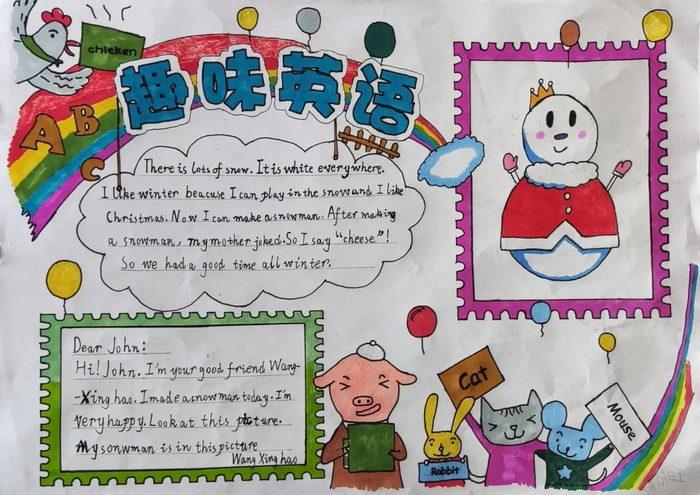 chicken
趣味英语
A B C
There is lots of snow. It is white everywhere.
I like winter beacuse I can play in the snow and I like
Christmas. Now I can make a snowman. After making
a snowman, my mother joked. So I say "cheese"!
So we had a good time all winter.
Dear John:
Hi! John. I'm your good friend Wang-
-Xing hao. I made a snowman today. I'm
very happy. Look at this picture.
My sonwman is in this picture
Wang Xing hao
Cat
Rabbit
Mouse